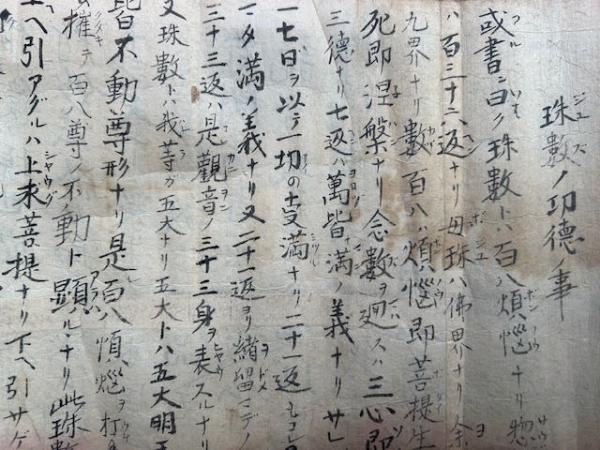 珠數ノ功德ノ事
或書ニ曰ク珠數ハ百八煩惱ナリ惣
ハ百三十二返ナリ母珠ハ佛界ナリ余
九界ナリ數百八ハ煩惱即菩提生
死即涅槃ナリ念數ヲ廻スハ三心即
三德ナリ七返ハ萬皆滿ノ義ナリサレ
一七日ヲ以テ一切の滿ナリ二十一返
滿ノ義ナリ又二十一返ヨリ緒留マデノ
三十三返ハ是觀音ノ三十三身ヲ表スルナリ
又珠數トハ我等ガ五大ナリ五大トハ五大明王
皆不動ノ尊形ナリ是百八煩惱ヲ打
權テ百八尊ノ不動ト顯ルヽナリ此珠數
上ヘ引アグルハ上求菩提ナリ下ヘ引サゲ